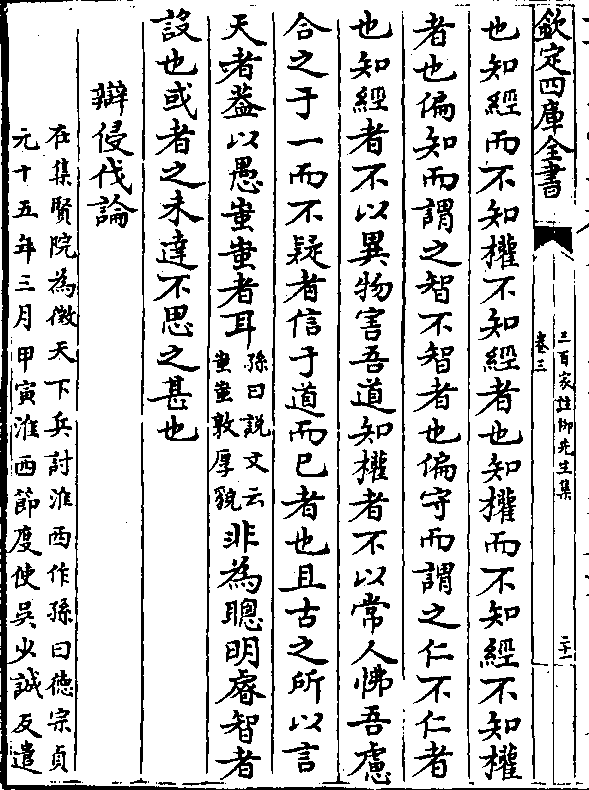 欽定四庫全書
卷三
五百家註柳先生集
二十一
也知經而不知權不知經者也知權而不知經不知權
者也偏知而謂之智不智者也偏守而謂之仁不仁者
也知經者不以異物害吾道知權者不以常人怫吾慮
合之于一而不疑者信于道而已者也且古之所以言
天者葢以愚蚩蚩者耳
孫曰說文云
蚩蚩敦厚貌
非為聰明睿智者
設也或者之未達不思之甚也
辯侵伐論
在集賢院為徵天下兵討淮西作孫曰德宗貞
元十五年三月甲寅淮西節度使吳少誠反遣